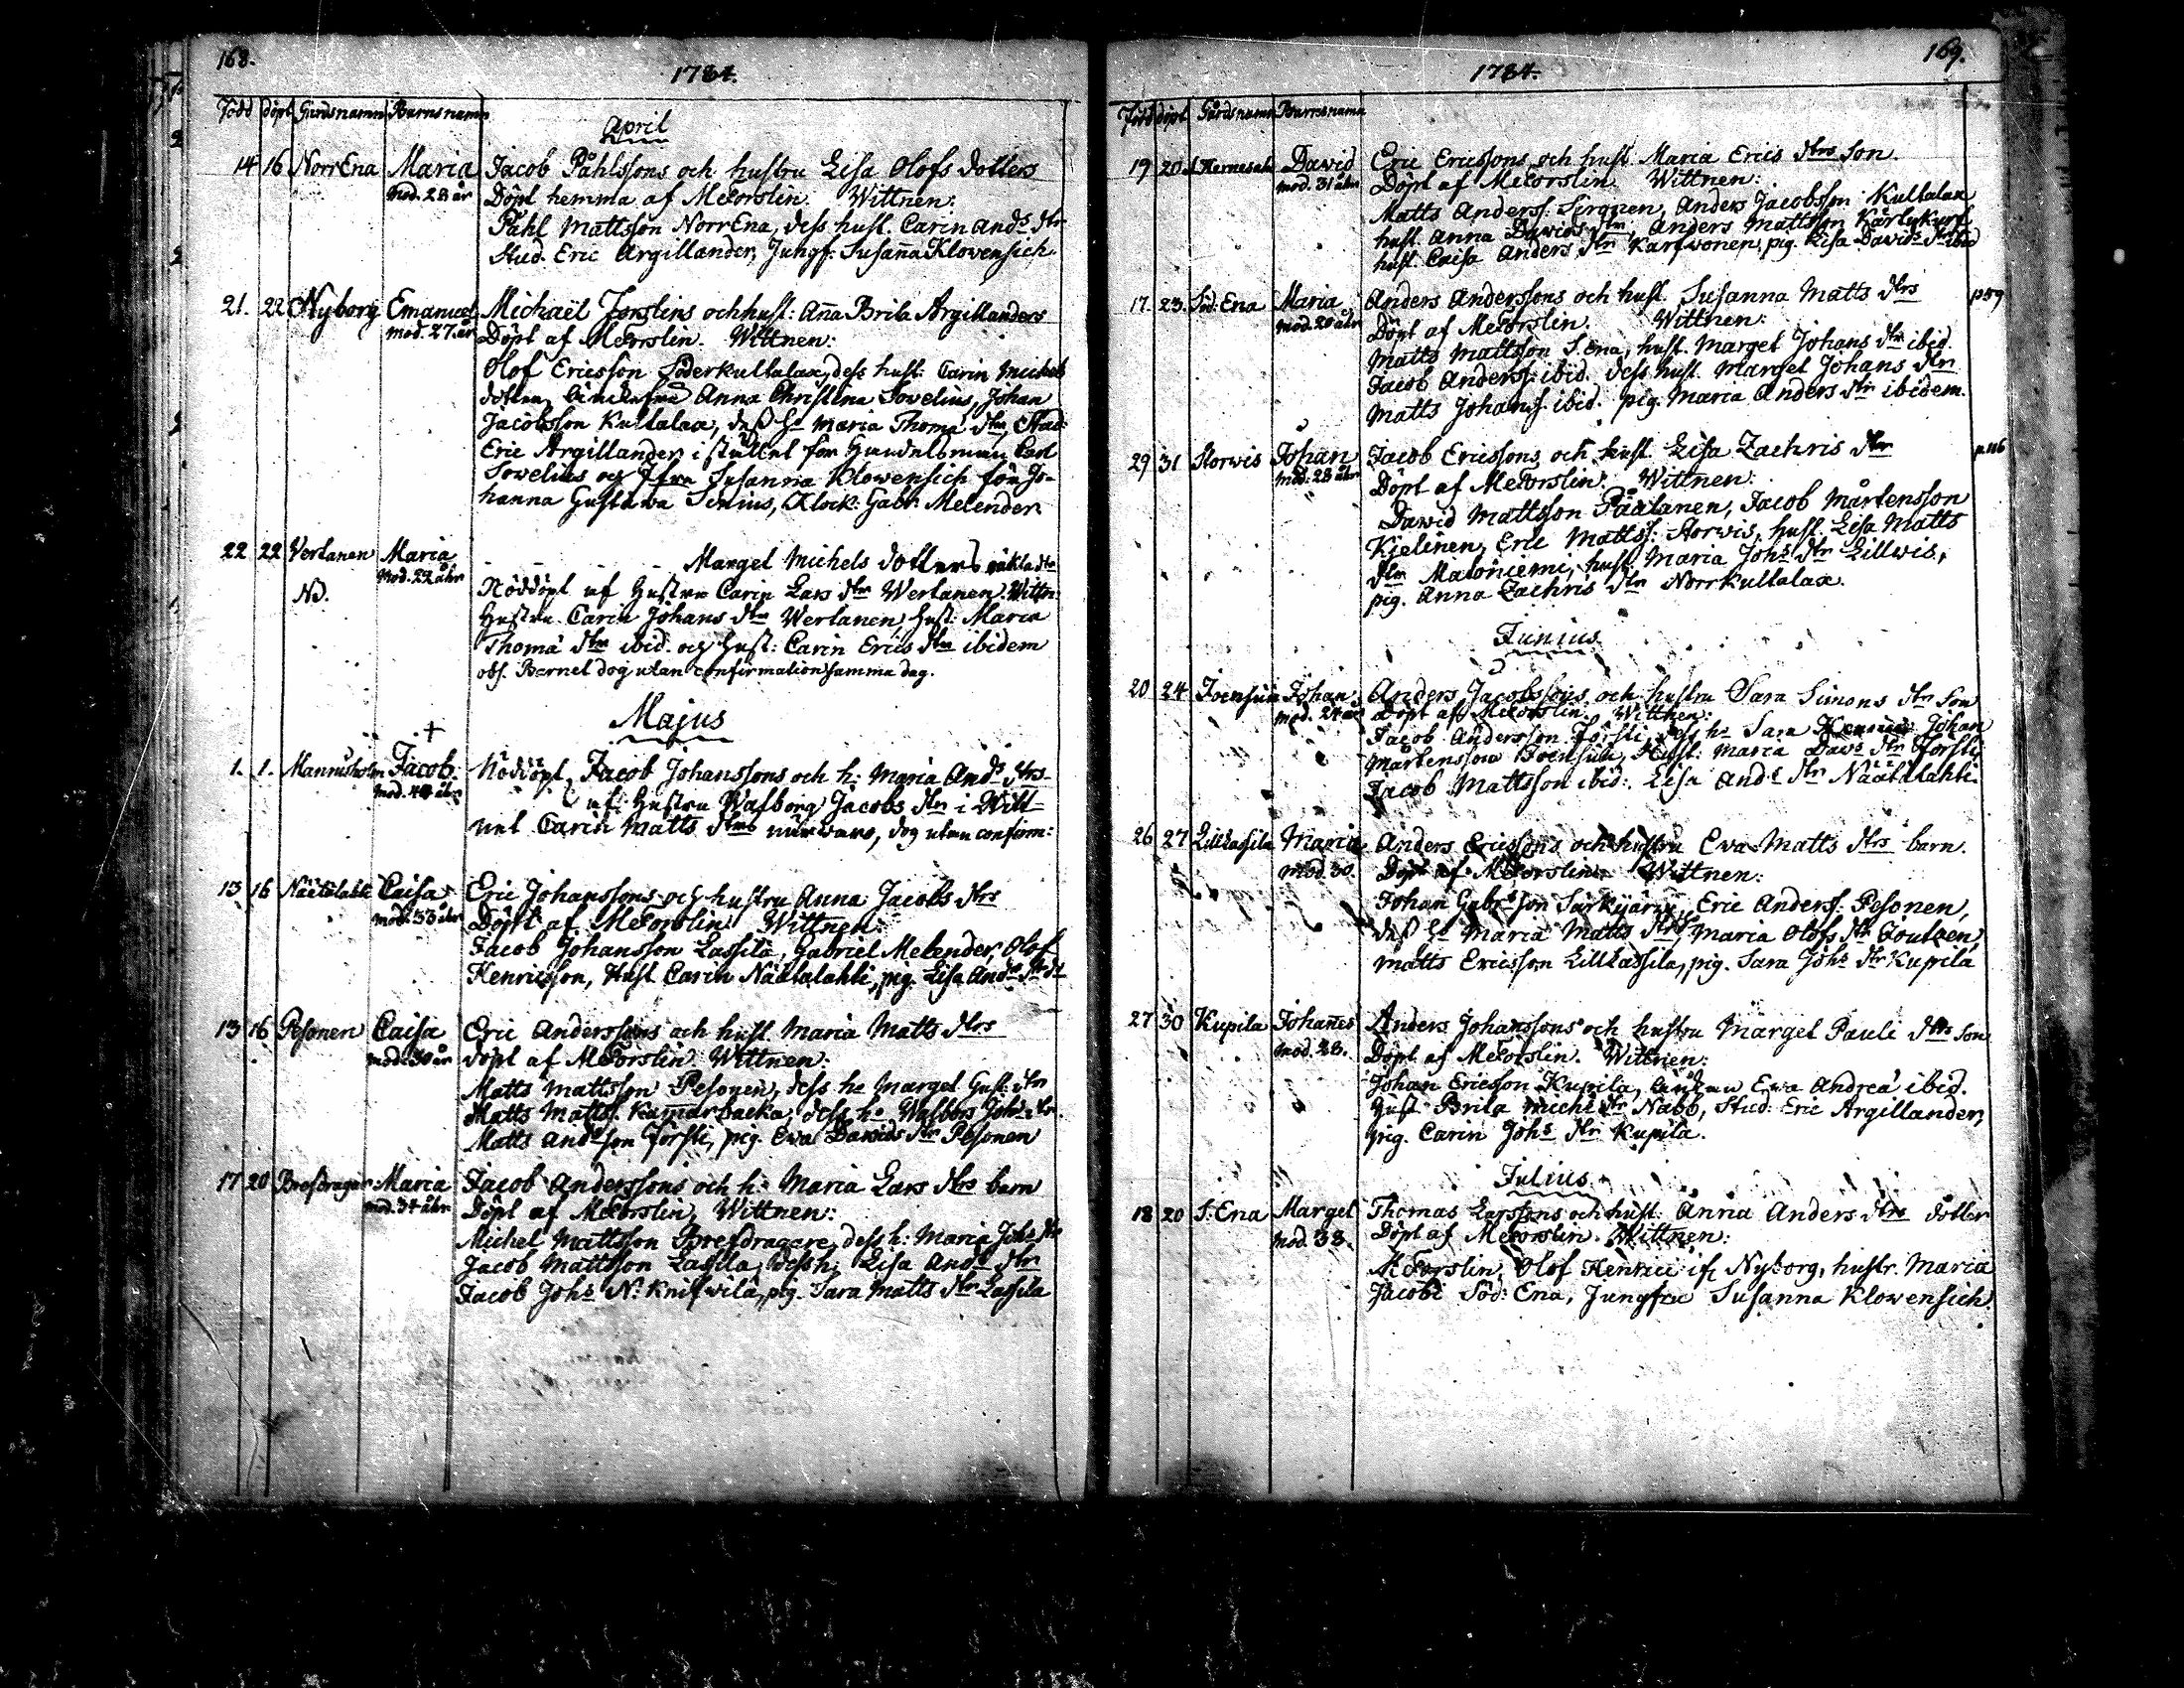 168.
1784.
Född döpt Gårdsnamn Barnsnamn
April
14 16 NorrEna Maria Jacob Påhlssons och hustru Lisa Olofs dotters
mod. 28 år Döpt hemma af MForslin. Wittnen:
Påhl Mattsson NorrEna, dess hust. Carin Ands dtr
Stud. Eric Argillander, Jungf: Susanna Klowensich
21. 22 Nyborg Emanuel Michaël Forslins och hust: Anna Brita Argillanders
mod. 27. år Döpt af MForslin. Wittnen:
Olof Ericsson Söderkultalax, dess hust: Carin Michels
dotter, Anna Christina Sovelius, Johan
Jacobsson Kultalax, dess ha Maria Thomæ dtr, Stud:
Eric Argillander i stället för Handelsman Carl
Sovelius och Jfru Susanna Klowensich för Jo-
hanna Gustava, Klock: Gabr. Melender
22 22 Vertanen Maria - - - Marget Michels dotters oäkta dtr
mod. 22 åhr Nöddöpt af Hustru Carin Lars dtr Wertanen. Wittn:
Nd. Hustru Carin Johans dtr Wertanen, hust: Maria
Thomæ dtr ibid. och hust: Carin Erics dtr ibidem
obs. Barnet dog utan confirmation samma dag.
Majus
+
1. 1. Mannusholm Jacob. Nöddöpt, Jacob Johanssons och h: Maria Ands dtrs
mod. åhr af Hustru Walborg Jacobs dtr i Witt-
net Carin Matts dtrs närwaro, dog utan confirm:
13 16 Näätälahti Caisa Eric Johanssons och hustru Anna Jacobs dtrs
mod. 33 åhr Döpt af MForslin! Wittnen:
Jacob Johansson Lassila, Gabriel Melender, Olof
Henricsson, Hust Carin Näätälahti, pig. Lisa Ands dtr dt
13 16 Pesonen Caisa Eric Anderssons och hust. Maria Matts dtrs
mod. 30 år döpt af MForslin Wittnen:
Matts Mattsson Pesonen, dess ha Marget Gust: dtr
Matts Matts: Kamarbacka, dess ha Walbor Johs dtr.
Matts Andsson Försti, pig. Ewa Davids dtr Pesonen
17 20 Brefdragar Maria Jacob Anderssons och h: Maria Lars dtrs barn
mod. 34 åhr Döpt af MForslin, Wittnen:
Michel Mattsson Brefdragare, dess h: Maria Johs dtr
Jacob Mattsson Lassila, dess h: Lisa Ands dtr
Jacob Johs N: Knifwilä, pig. Sara Matts dtr Lassila
169.
1784.
Född döpt Gårdsnamn Barnsnamn
19 20 Hernesah David Eric Ericssons och hust Maria Erics dtrs son.
mod. 31 åhr Döpt af MForslin Wittnen:
Matts Anderss: Sironen, Anders Jacobsson Kultalax
hust. Anna Dawids dtr, Anders Mattsson Kärlykurf
hust. Caisa Anders dtr Karfwonen, pig. Lisa Davids dtr ibid
17. 23. Söd: Ena Maria Anders Anderssons och hust. Susanna Matts dtrs p 59
mod. 20 åhr Döpt af MForslin. Wittnen:
Matts Mattsson S. Ena, hust. Marget Johans dtr ibid.
Jacob Anderss: ibid. dess hust. Marget Johans dtr
Matts Johanss: ibid. pig. Maria Anders dtr ibidem.
29 31 Storwis Johan Jacob Ericssons och hust Lisa Zachris dtr p. 116
mod. 28 åhr Döpt af MForslin. Wittnen:
Dawid Mattsson Päätänen, Jacob Mårtensson
Kielinen, Eric Mattss: Storwis, hust: Lisa Matts
dtr Matoniemi, hust. Maria Johs dtr Lillwis,
pig. Anna Zachris dtr Norrkultalax.
Junius
20 24 Joensuu Johan Anders Jacobssons och hustru Sara Simons dtr son
mod. 24 år Döpt af MForslin Wittnen:
Jacob Andersson Försti, dess ha Sara Johan
Mårtensson Joensuu, Hust: Maria Davs dtr Försti
Jacob Mattsson ibid: Lisa Ands dtr Näätälahti.
26 27 LillLassila Maria Anders Ericssons och hustru Ewa Matts dtrs barn.
mod 30. Döpt af MForslin Wittnen:
Johan Gabrsson Särkijärvi, Eric Anderss: Pesonen,
dess ha Maria Matts dtr, Maria Olofs dtr
Matts Ericsson LillLassila, pig. Sara Johs dtr Kupila
27 30 Kupila Johannes Anders Johanssons och hustru Marget Pauli dtr son
mod. 28. Döpt af MForslin. Wittnen:
Johan Ericsson Kupila, Ewa Andreæ ibid.
Hust Brita Michs dtr Nabb, Stud: Eric Argillander,
pig. Carin Johs dtr Kupila.
Julius
18 20 S: Ena Marget Thomas Larssons och hust. Anna Anders dtrs dotter
mod. 38. Döpt af MForslin. Wittnen:
MForslin, Olof Henrici if Nyborg, hustr. Maria
Jacobi Söd: Ena, Jungfru Susanna Klowensich.